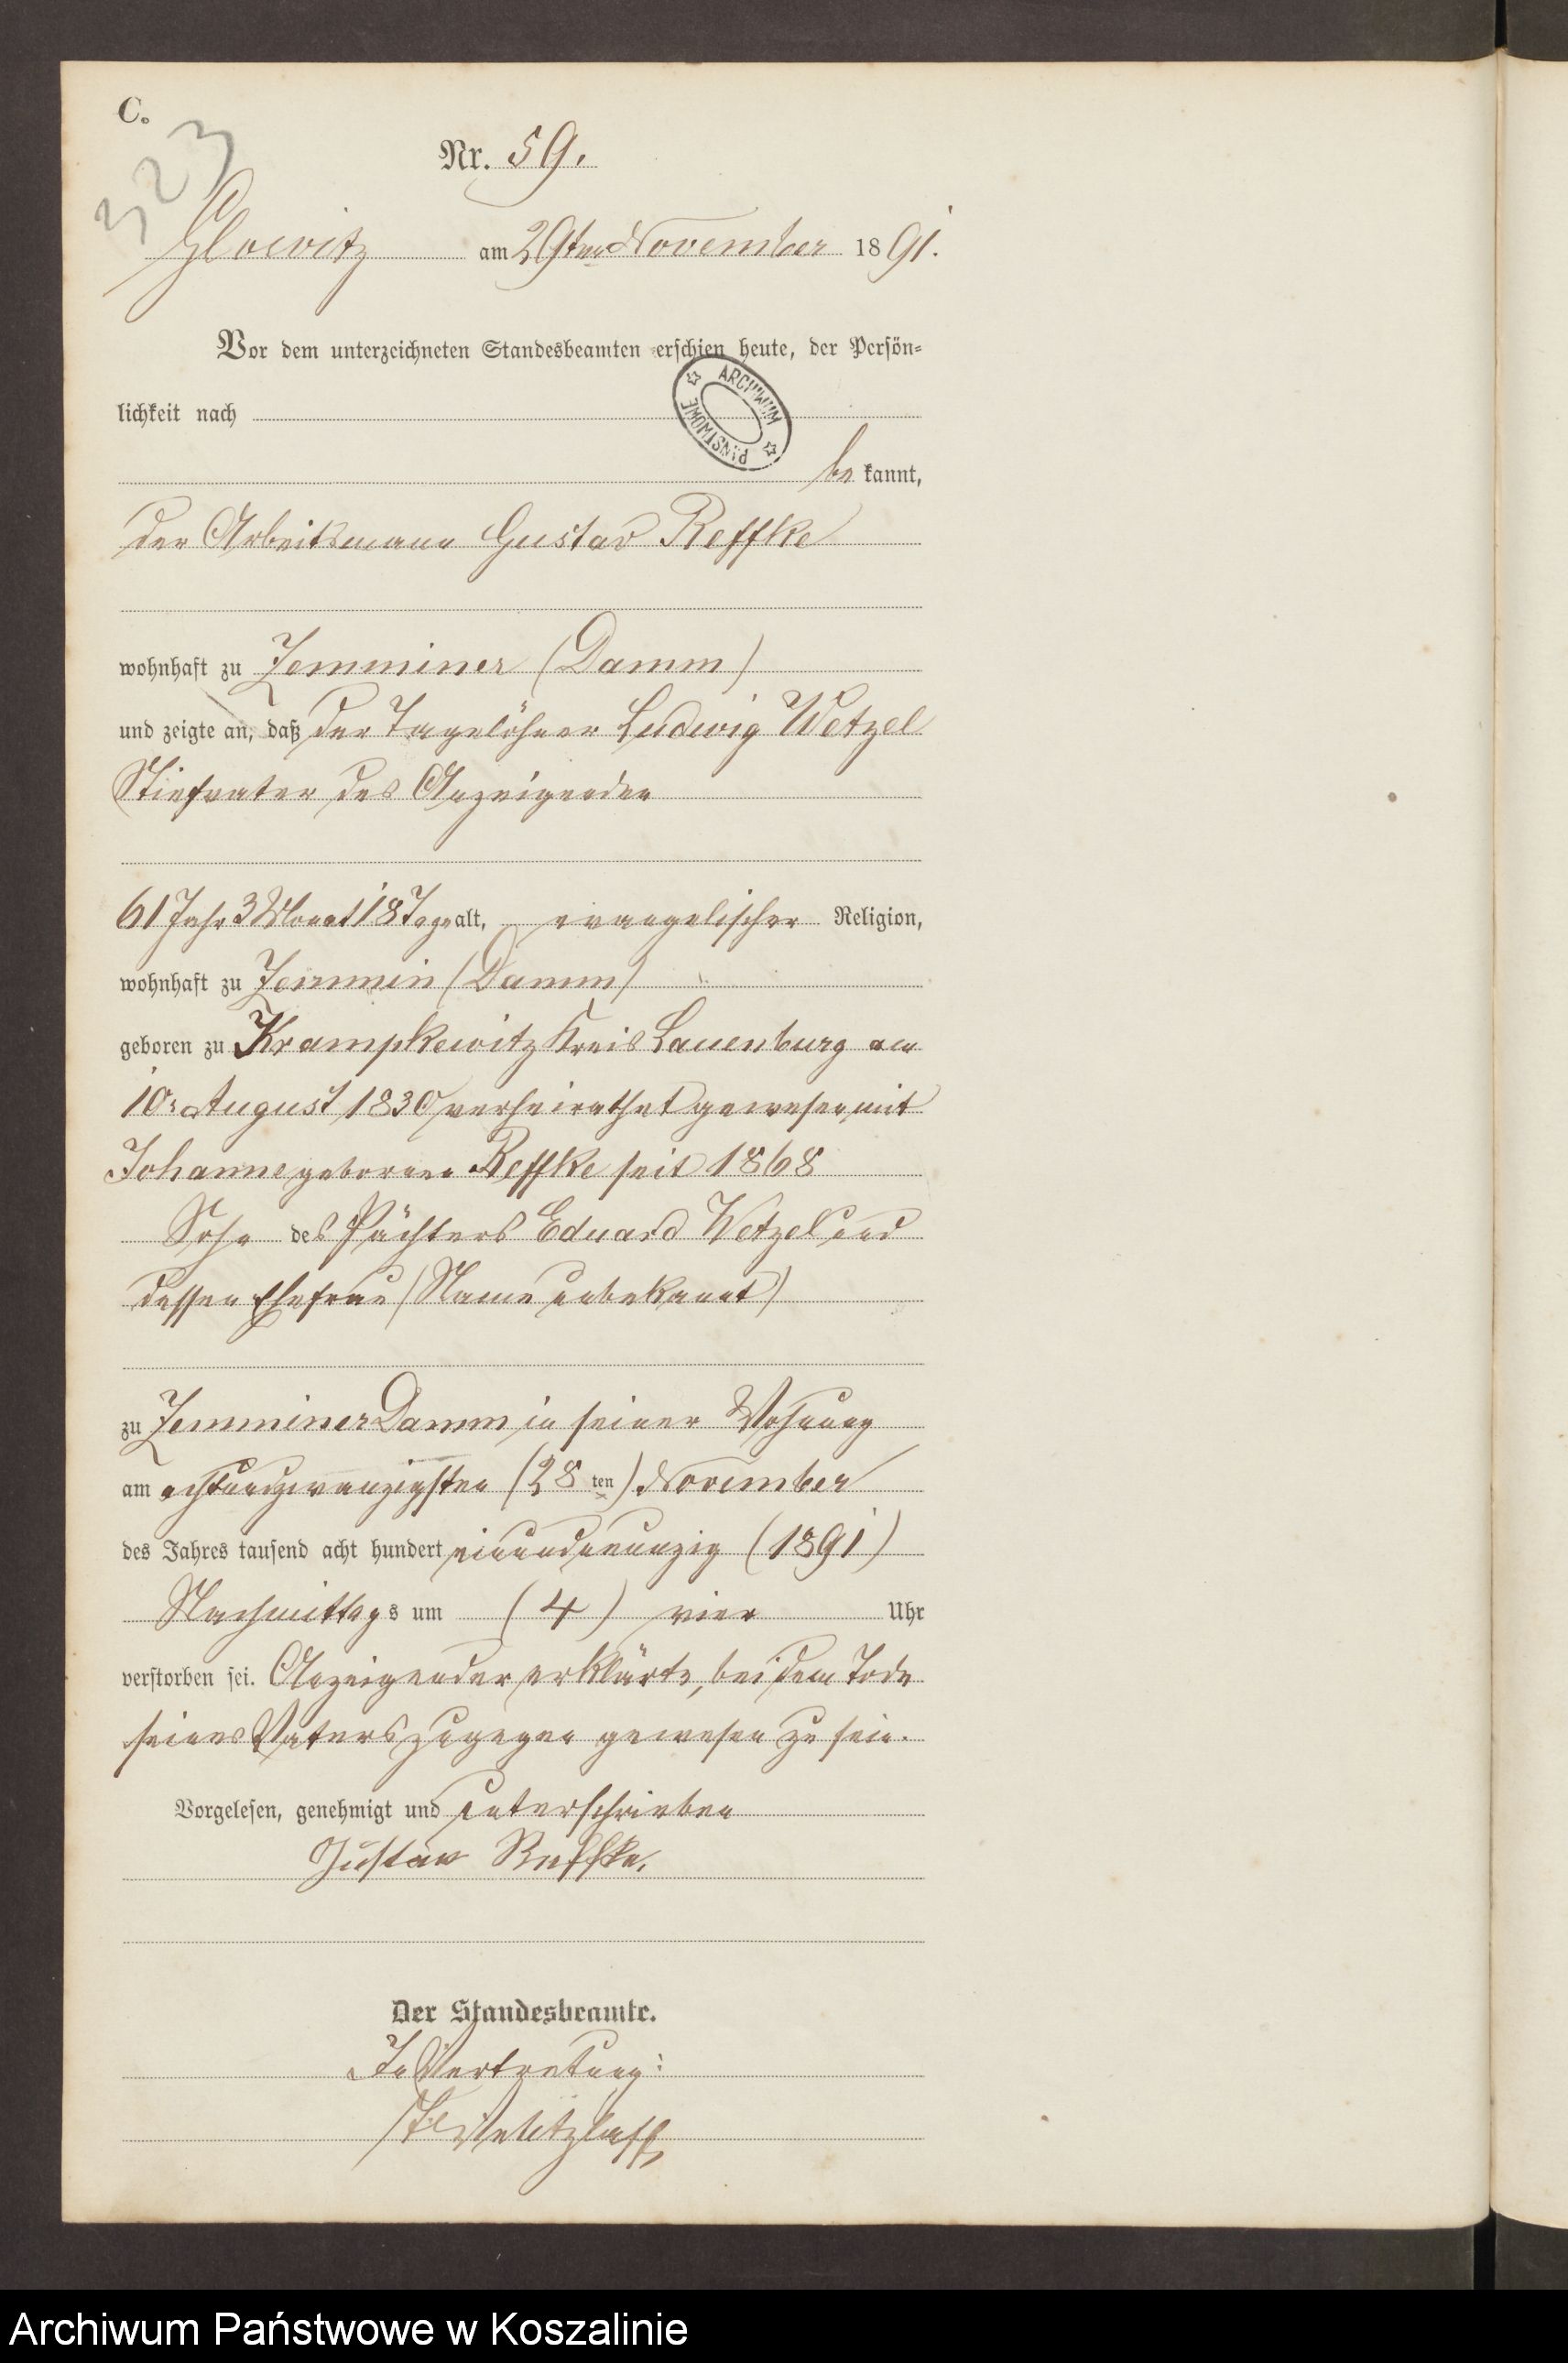 C.
323
Nr. 59.
Glowitz am 29ten November 1891.
Vor dem unterzeichneten Standesbeamten erschien heute, der Persön-
ARCHIWUM PAŃSTWOWE
lichkeit nach
be kannt,
der Arbeitsmann Gustav Reffke
wohnhaft zu Zemminer (Damm)
und zeigte an, daß der Tagelöhner Ludwig Wetzel
Stiefvater des Anzeigenden
61 Jahr 3 Monat 18 Tage alt, evangelischer Religion,
wohnhaft zu Zemmin (Damm)
geboren zu Krampkewitz Kreis Lauenburg am
10. August 1830 verheirathet gewesen mit
Johanne geborene Reffke seit 1868
Sohn des Pächters Eduard Wetzel und
dessen Ehefrau (Name unbekannt)
zu Zemminer Damm in seiner Wohnung
am achtundzwanzigsten (28 ten) November
des Jahres tausend acht hundert einundneunzig (1891)
Nachmittags um (4) vier Uhr
verstorben sei. Anzeigender erklärte, bei dem Tode
seines Vaters zugegen gewesen zu sein.
Vorgelesen, genehmigt und unterschrieben
Gustav Reffke.
Der Standesbeamte.
In Vertretung:
Archiwum Państwowe w Koszalinie